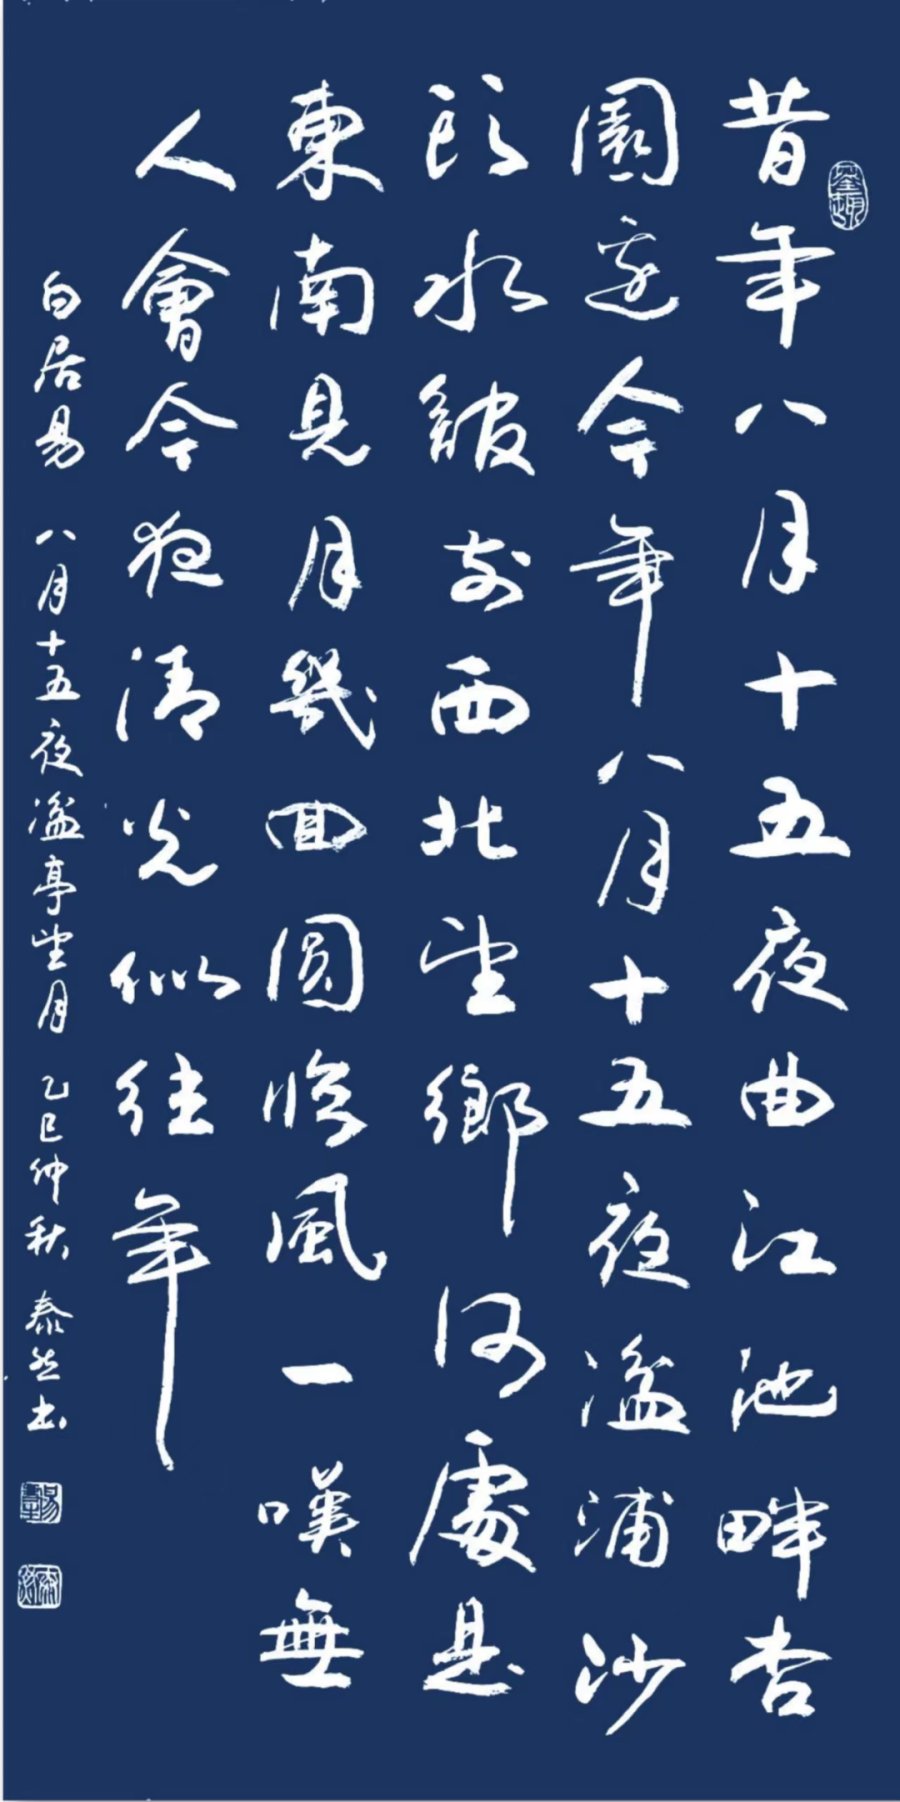 昔年八月十五夜曲江池畔杏
園邊今年八月十五夜湓浦沙
頭水館前西北望鄉何處是
東南見月幾回圓臨風一嘆無
人會今夜清光似往年
白居易 八月十五夜湓亭望月 乙巳仲秋 泰然书